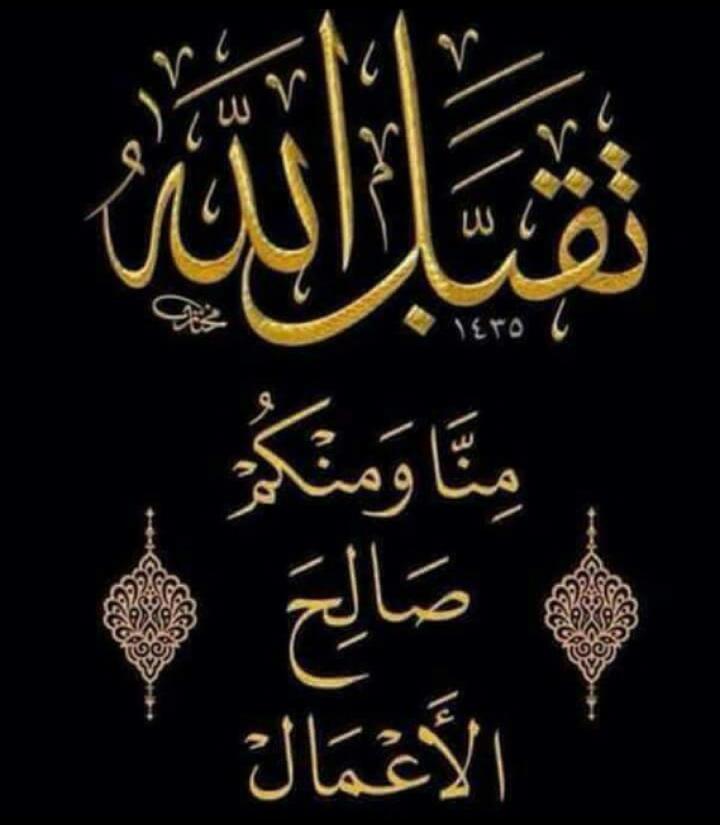 تَقَبَّلَ اللّٰهُ
١٤٣٥
مِنَّا وَمِنْكُمْ
صَالِحَ
الأَعْمَالْ